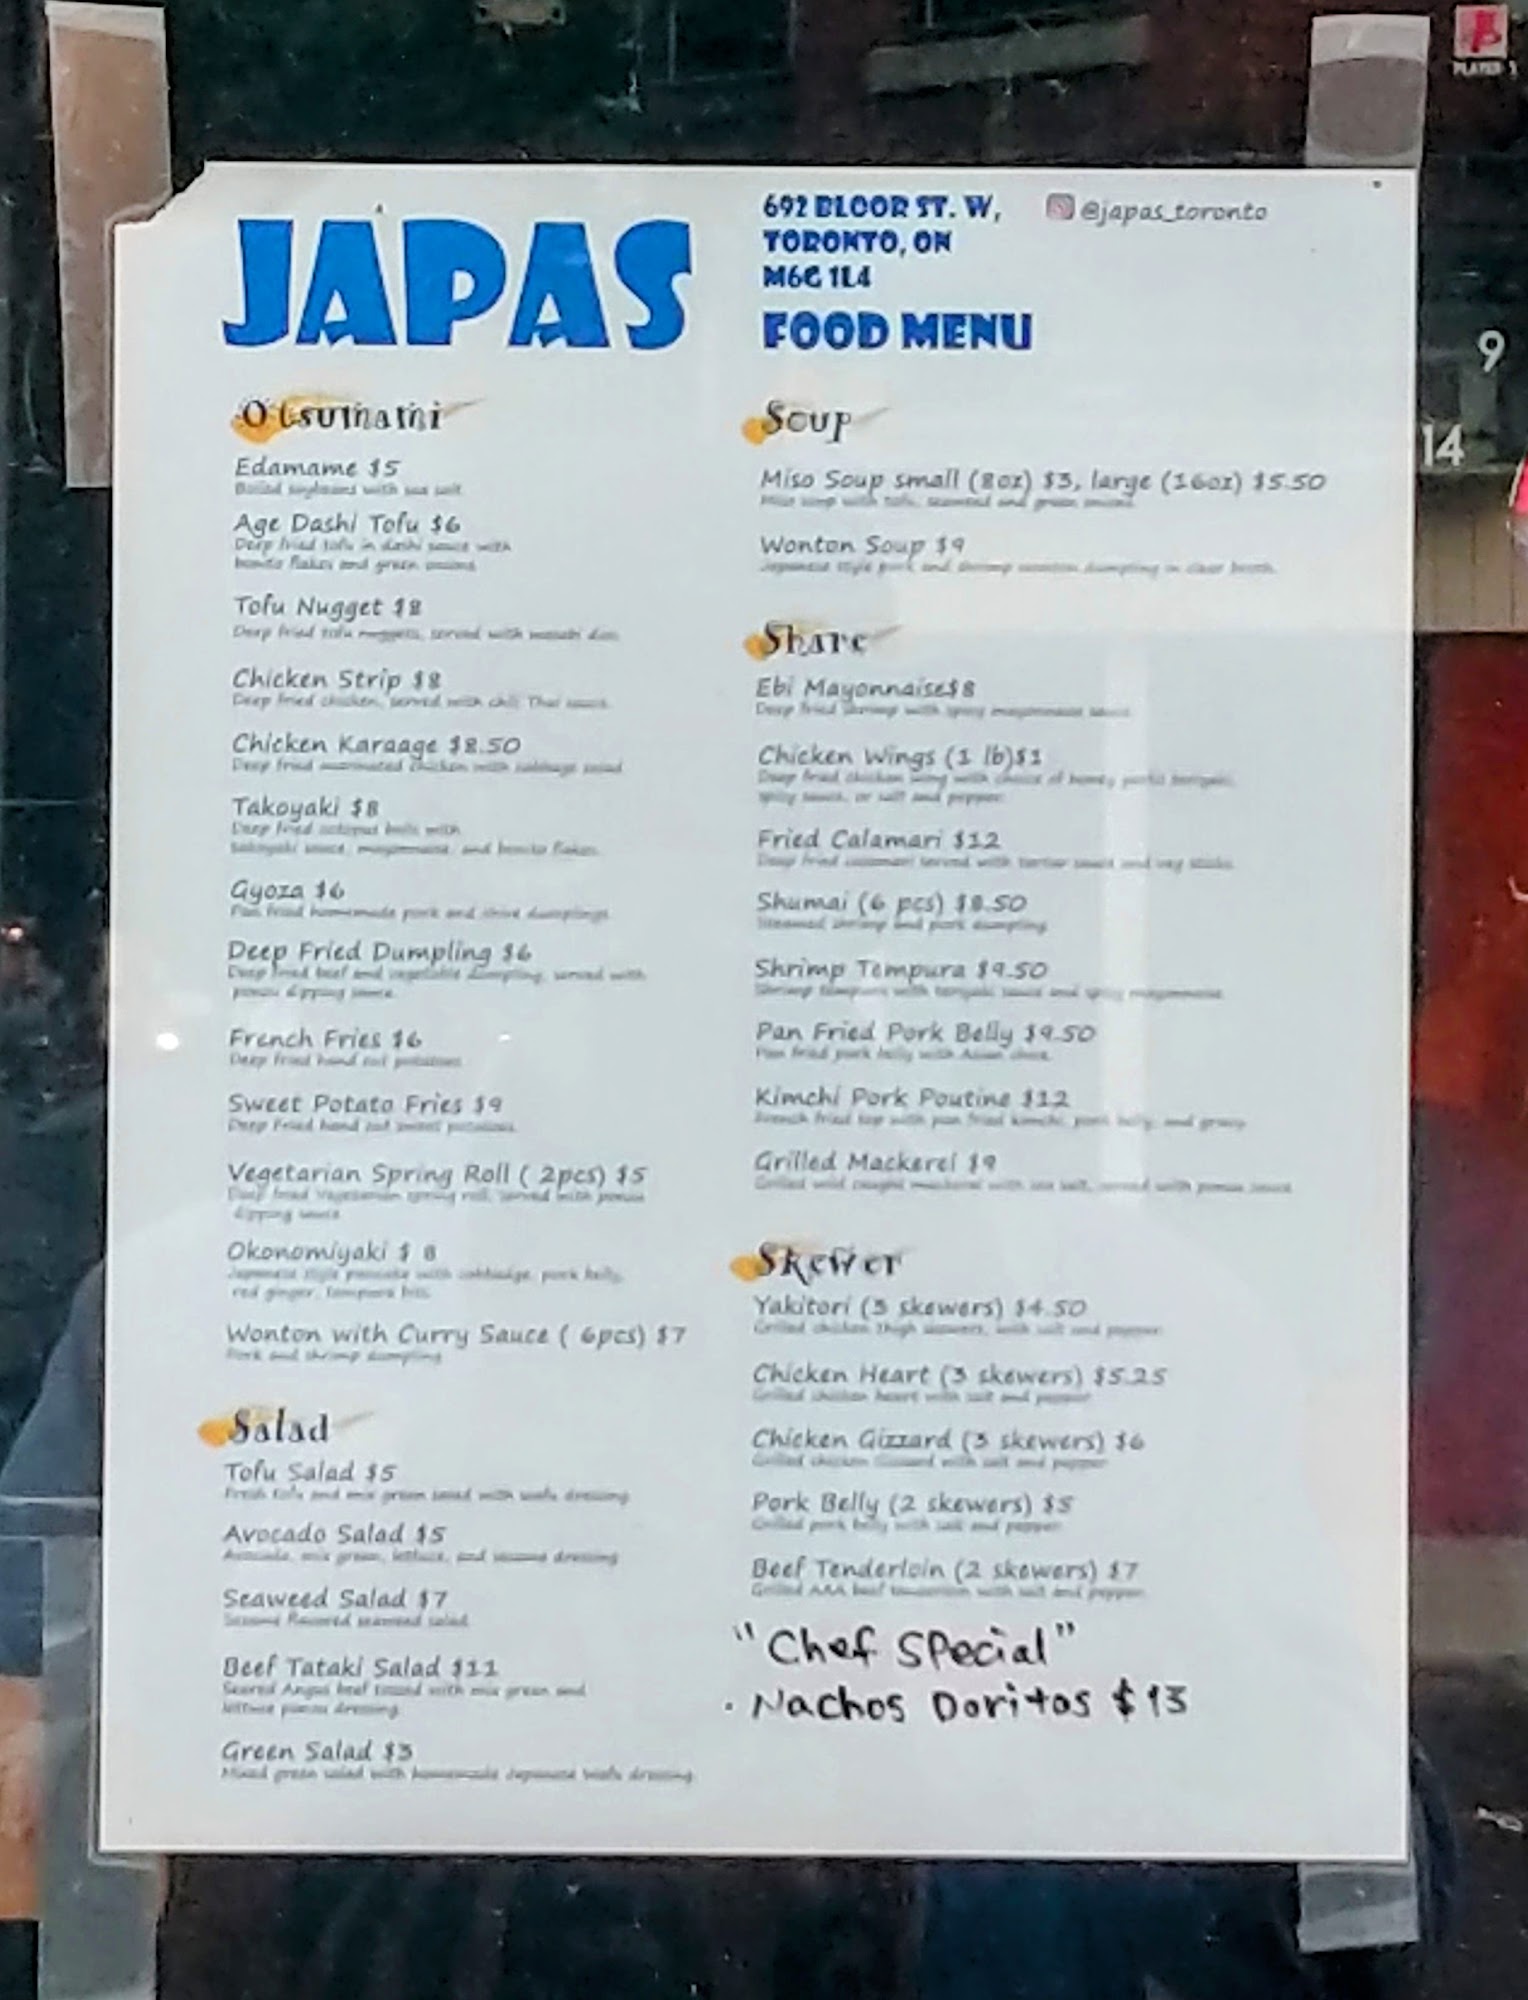 JAPAS
692 BLOOR ST. W,
TORONTO, ON
M6G 1L4
@japas_toronto
FOOD MENU
Otsumami
Edamame $5
Boiled soybeans with sea salt
Age Dashi Tofu $6
Deep fried tofu in dashi sauce with
bonito flakes and green onions
Tofu Nugget $8
Deep fried tofu nuggets, served with wasabi dip
Chicken Strip $8
Deep fried chicken, served with chili Thai sauce
Chicken Karaage $8.50
Deep fried marinated chicken with cabbage salad
Takoyaki $8
Deep fried octopus balls with
takoyaki sauce, mayonnaise, and bonito flakes
Gyoza $6
Pan fried homemade pork and chive dumplings
Deep Fried Dumpling $6
Deep fried beef and vegetable dumpling, served with
ponzu dipping sauce
French Fries $6
Deep fried hand cut potatoes
Sweet Potato Fries $9
Deep Fried hand cut sweet potatoes
Vegetarian Spring Roll ( 2pcs) $5
Deep fried vegetarian spring roll, served with ponzu
dipping sauce
Okonomiyaki $ 8
Japanese style pancake with cabbadge, pork belly,
red ginger, tempura bits
Wonton with Curry Sauce ( 6pcs) $7
Pork and shrimp dumpling
Salad
Tofu Salad $5
Fresh tofu and mix green salad with wafu dressing
Avocado Salad $5
Avocado, mix green, lettuce, and sesame dressing
Seaweed Salad $7
Sesame flavored seaweed salad
Beef Tataki Salad $11
Seared Angus beef with mix green and
lettuce ponzu dressing
Green Salad $3
Mixed green salad with homemade Japanese Wafu dressing
Soup
Miso Soup small (8oz) $3, large (16oz) $5.50
Miso soup with tofu, seaweed and green onions
Wonton Soup $9
Japanese style pork and shrimp wonton dumpling in clear broth
Share
Ebi Mayonnaise$8
Deep fried shrimp with spicy mayonnaise sauce
Chicken Wings (1 lb)$1
Deep fried chicken wing with choice of honey garlic teriyaki,
spicy sauce, or salt and pepper
Fried Calamari $12
Deep fried calamari served with tartar sauce and veg sticks
Shumai (6 pcs) $8.50
Steamed shrimp and pork dumpling
Shrimp Tempura $9.50
Shrimp tempura with teriyaki sauce and spicy mayonnaise
Pan Fried Pork Belly $9.50
Pan fried pork belly with Asian chive
Kimchi Pork Poutine $12
French fried top with pan fried kimchi, pork belly, and gravy
Grilled Mackerel $9
Grilled wild caught mackerel with sea salt, served with ponzu sauce
Skewer
Yakitori (3 skewers) $4.50
Grilled chicken thigh skewers, with salt and pepper
Chicken Heart (3 skewers) $5.25
Grilled chicken heart with salt and pepper
Chicken Gizzard (3 skewers) $6
Grilled chicken Gizzard with salt and pepper
Pork Belly (2 skewers) $5
Grilled pork belly with salt and pepper
Beef Tenderloin (2 skewers) $7
Grilled AAA beef tenderloin with salt and pepper
"Chef Special"
· Nachos Doritos $13
PLAYER 1
9
14